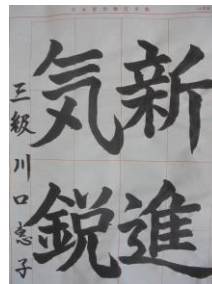 新進
気鋭
三級川口恵子